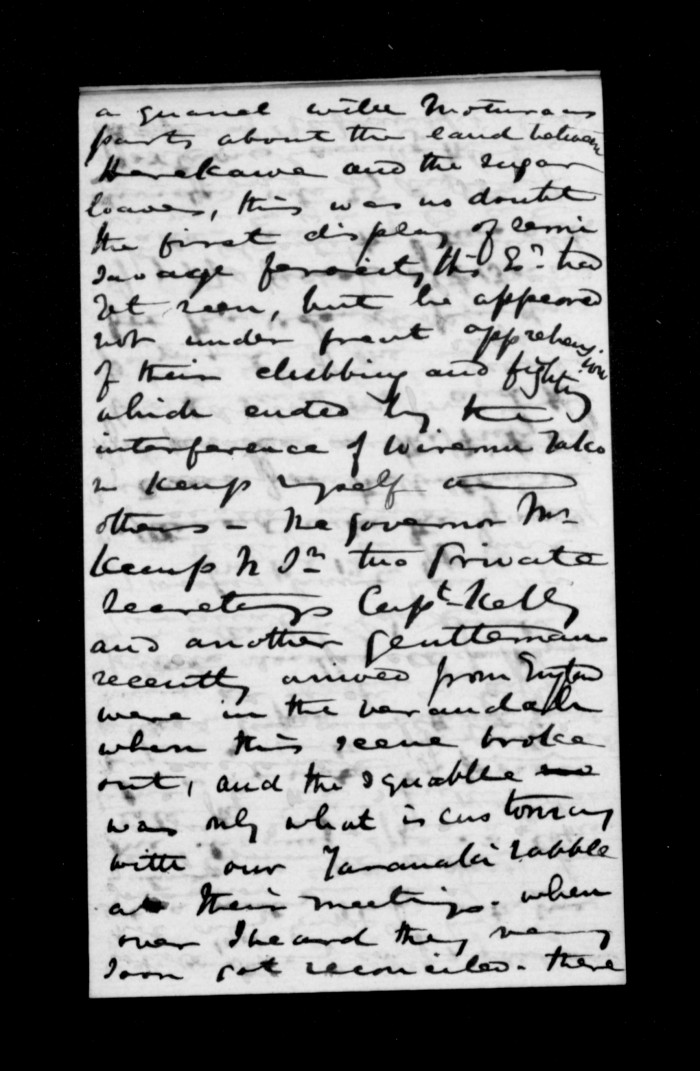 a quarrel with Moturoa's
parts about the land between
Herekawe and the sugar
loaves, this was no doubt
the first display of semi
savage ferocity this Eˣ had
yet seen, but he appeared
not under great apprehension
of their clubbing and fighting
which ended by the
interference of Wiremu Tako
Kemp myself and
others - The Governor Mr
Kemp two private
Secretarys Capt Kelly
and another gentleman
recently arrived from England
were in the verandah
when this scene broke
out, and the squabble
was only what is customary
with our Taranaki rabble
at their meetings. when
over I heard they very
soon got reconciled - there